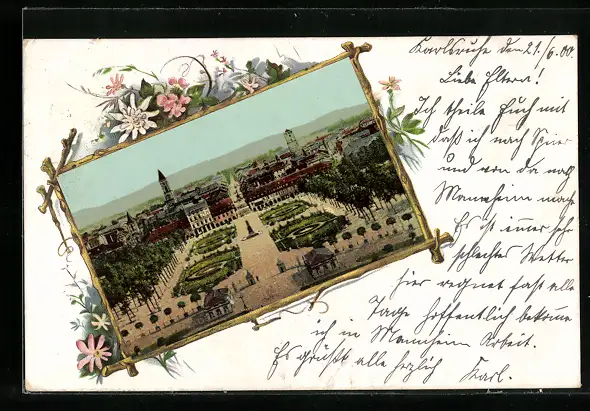 Karlsruhe den 21./6.00.
Liebe Eltern!
Ich theile Euch mit
daß ich nach Speier
und von da nach
Mannheim mache
Es ist immer sehr
schlechtes Wetter
hier regnet fast alle
Tage hoffentlich bekomme
ich in Mannheim Arbeit.
Es grüßt alle herzlich Karl.